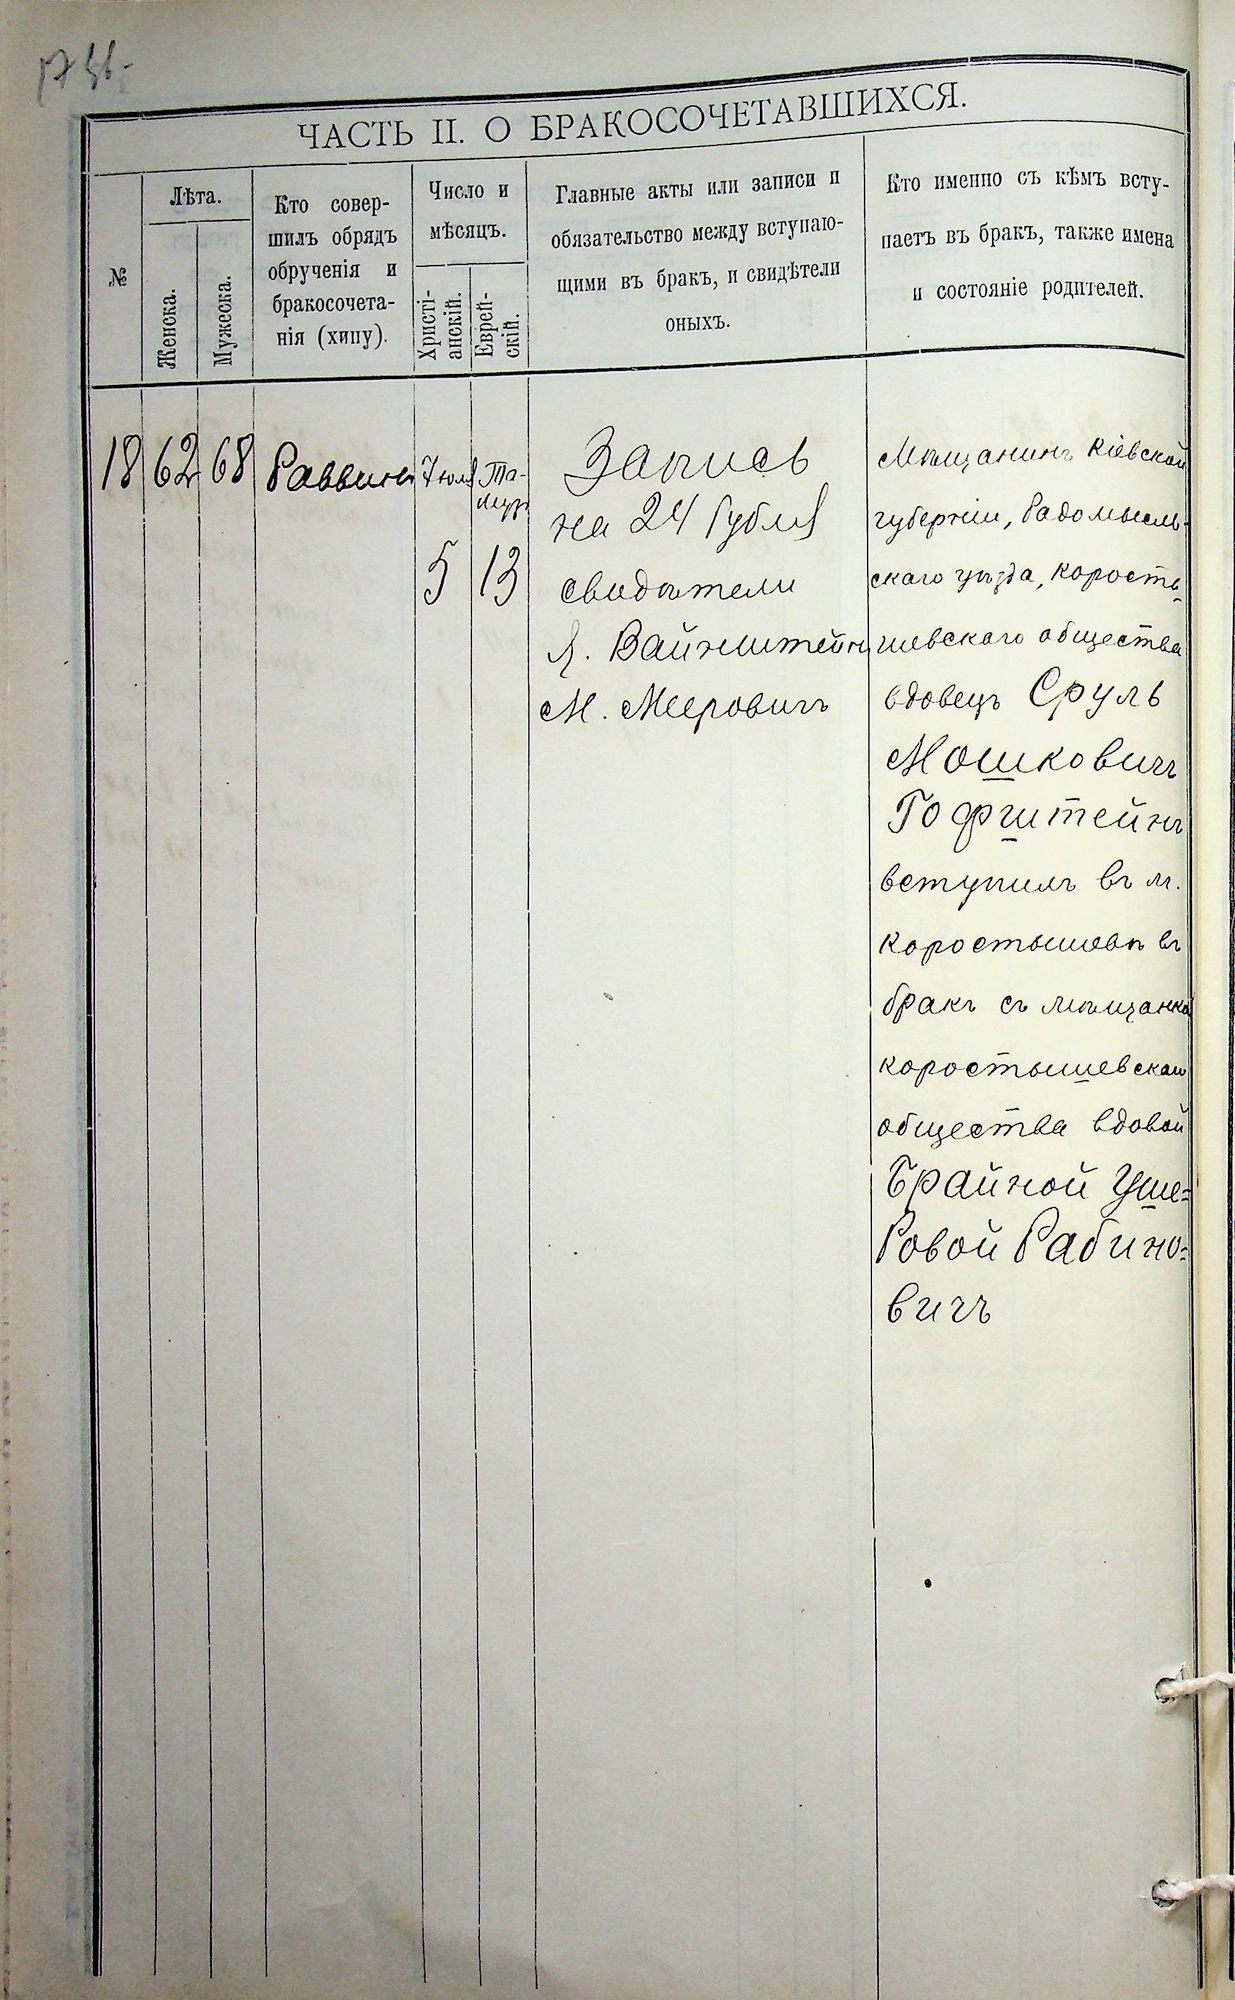 ЧАСТЬ II. О БРАКОСОЧЕТАВШИХСЯ.
№
Лѣта.
Женска.
Мужеска.
Кто совер-
шилъ обрядъ
обрученія и
бракосочета-
нія (хипу).
Число и
мѣсяцъ.
Христі-
анскій.
Еврей-
скій.
Главные акты или записи и
обязательство между вступаю-
щими въ бракъ, и свидѣтели
оныхъ.
Кто именно съ кѣмъ всту-
паетъ въ бракъ, также имена
и состояніе родителей.
18
62
68
Раввинъ
Іюля
5
Та-
музъ
13
Запись
на 24 рубля
свидѣтели
Я. Вайнштейнъ
М. Мееровичъ
Мѣщанинъ Кіевской
губерніи, Радомысль-
скаго уѣзда, Корости-
шевскаго общества
вдовецъ Сруль
Мошковичъ
Гофштейнъ
вступилъ въ м.
Коростышевѣ въ
бракъ съ мѣщанкой
Коростышевскаго
общества вдовой
Брайной Уше=
ровой Рабино=
вичъ